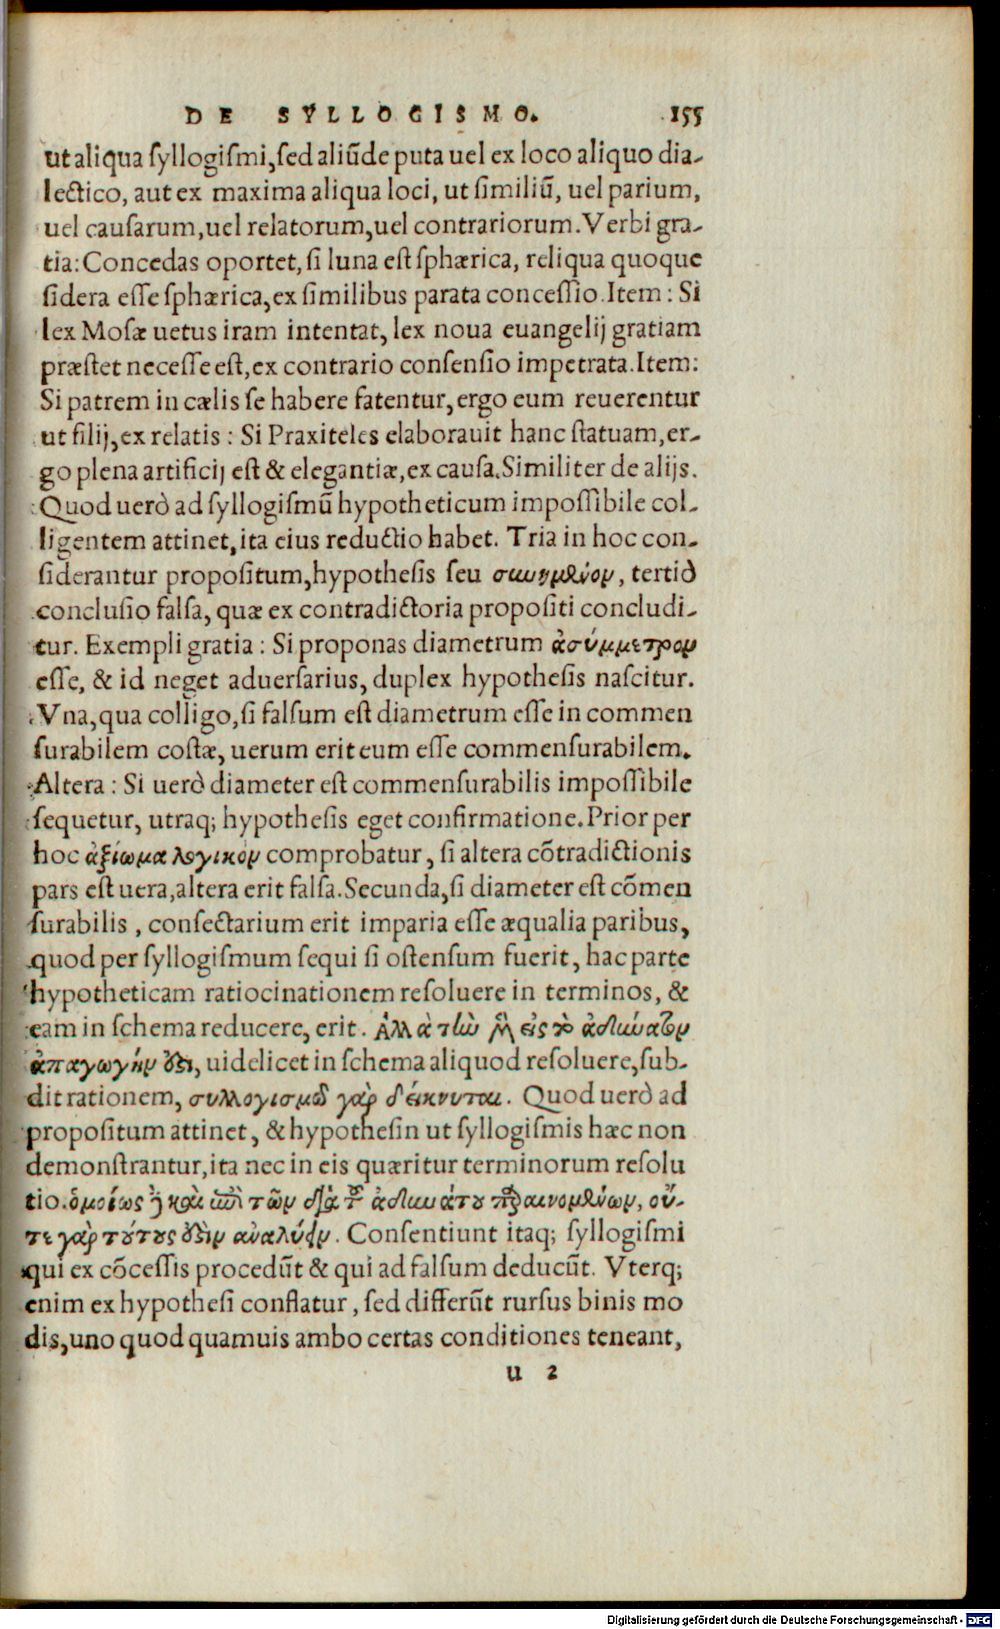 DE SYLLOGISMO. 155
ut aliqua syllogismi, sed aliũde puta uel ex loco aliquo dia-
lectico, aut ex maxima aliqua loci, ut similiũ, uel parium,
uel causarum, uel relatorum, uel contrariorum. Verbi gra-
tia: Concedas oportet, si luna est sphærica, reliqua quoque
sidera esse sphærica, ex similibus parata concessio. Item: Si
lex Mosæ uetus iram intentat, lex noua euangelij gratiam
præstet necesse est, ex contrario consensio impetrata. Item:
Si patrem in cælis se habere fatentur, ergo eum reuerentur
ut filij, ex relatis: Si Praxiteles elaborauit hanc statuam, er-
go plena artificij est & elegantiæ, ex causa. Similiter de alijs.
Quod uerò ad syllogismũ hypotheticum impossibile col-
ligentem attinet, ita eius reductio habet. Tria in hoc con-
siderantur propositum, hypothesis seu συνημμένον, tertiò
conclusio falsa, quæ ex contradictoria propositi concludi-
tur. Exempli gratia: Si proponas diametrum ἀσύμμετρον
esse, & id neget aduersarius, duplex hypothesis nascitur.
Vna, qua colligo, si falsum est diametrum esse in commen
surabilem costæ, uerum erit eum esse commensurabilem.
Altera: Si uerò diameter est commensurabilis impossibile
sequetur, utraq; hypothesis eget confirmatione. Prior per
hoc ἀξίωμα λογικὸν comprobatur, si altera cõtradictionis
pars est uera, altera erit falsa. Secunda, si diameter est cõmen
surabilis, consectarium erit imparia esse æqualia paribus,
quod per syllogismum sequi si ostensum fuerit, hac parte
hypotheticam ratiocinationem resoluere in terminos, &
eam in schema reducere, erit. Ἀλλὰ τὴν μὲν εἰς τὸ ἀδύνατον
ἀπαγωγὴν ἔστι, uidelicet in schema aliquod resoluere, sub-
dit rationem, συλλογισμῷ γὰρ δείκνυται. Quod uerò ad
propositum attinet, & hypothesin ut syllogismis hæc non
demonstrantur, ita nec in eis quæritur terminorum resolu
tio. ὁμοίως ἢ καὶ ἐπὶ τῶν διὰ τοῦ ἀδυνάτου περαινομένων, οὔ-
τε γὰρ τούτους ἔστιν ἀναλύειν. Consentiunt itaq; syllogismi
qui ex cõcessis procedũt & qui ad falsum deducũt. Vterq;
enim ex hypothesi conflatur, sed differũt rursus binis mo
dis, uno quod quamuis ambo certas conditiones teneant,
u 2
Digitalisierung gefördert durch die Deutsche Forschungsgemeinschaft - DFG